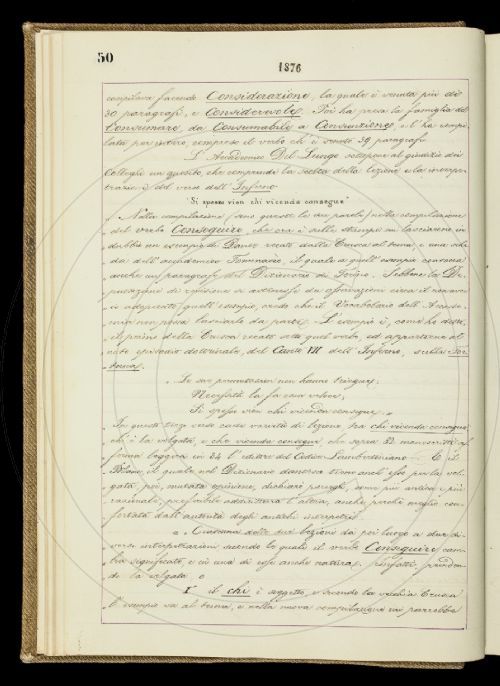 50
1876
compilava facendo Considerazione, la quale è venuta più di
30 paragrafi, e Considerevole. Poi ha presa la famiglia del
Consumare, da Consumabile a Consunzione, e l'ha compi-
lata per intero, compreso il verbo che è venuto 39 paragrafi.
L'Accademico Del Lungo sottopone al giudizio dei
Colleghi un quesito che comprende la scelta della lezione e la interpe-
trazione del verso dell'Inferno
"Sì spesso vien chi vicenda consegue"
"Nella compilazione (sono queste le sue parole) nella compilazione
" del verbo Conseguire, che ora è sullo stampo, mi lasciarono in
" dubbio un esempio di Dante recato dalla Crusca al tema, e una sche
" da dell'accademico Tommaseo, il quale a quell'esempio consacra
" anche un paragrafo del Dizionario di Torino. Sebbene la De
" putazione di revisione si astenesse da osservazioni circa il
" quell'esempio, credo che il Vocabolario dell'Accade-
" mia non possa lasciarlo da parte. L'esempio è, come ho detto,
" il primo della Crusca recato sotto quel verbo, ed appartiene al
" noto episodio dottrinale, del Canto VII dell'Inferno, sulla For
" tuna;
" Le sue permutazion non hanno triegue;
Necessità la fa esser veloce;
Sì spesso vien chi vicenda consegue. "
In questo terzo verso cade varietà di lezione fra chi vicenda consegue
che è la volgata, e che vicenda consegue che sopra 52 manoscritti af-
ferma leggersi in 34 l'editore del Codice Lambertiniano. E il
Blanc, il quale nel Dizionario dantesco tiene anch'esso per la vol-
gata poi, mutata opinione, dichiarò parergli, come più antica e più
razionale, preferibile addirittura l'altra, anche perchè meglio con-
fortata dall'autorità degli antichi interpetri.
" Ciascuna delle due lezioni dà poi luogo a due di-
verse interpetrazioni secondo le quali il verbo Conseguire cam-
bia significato, e in una di esse anche natura. Infatti, prenden-
do la volgata o
I il chi è soggetto, e secondo la vecchia Crusca
l'esempio va al tema, e nella nuova compilazione mi parrebbe